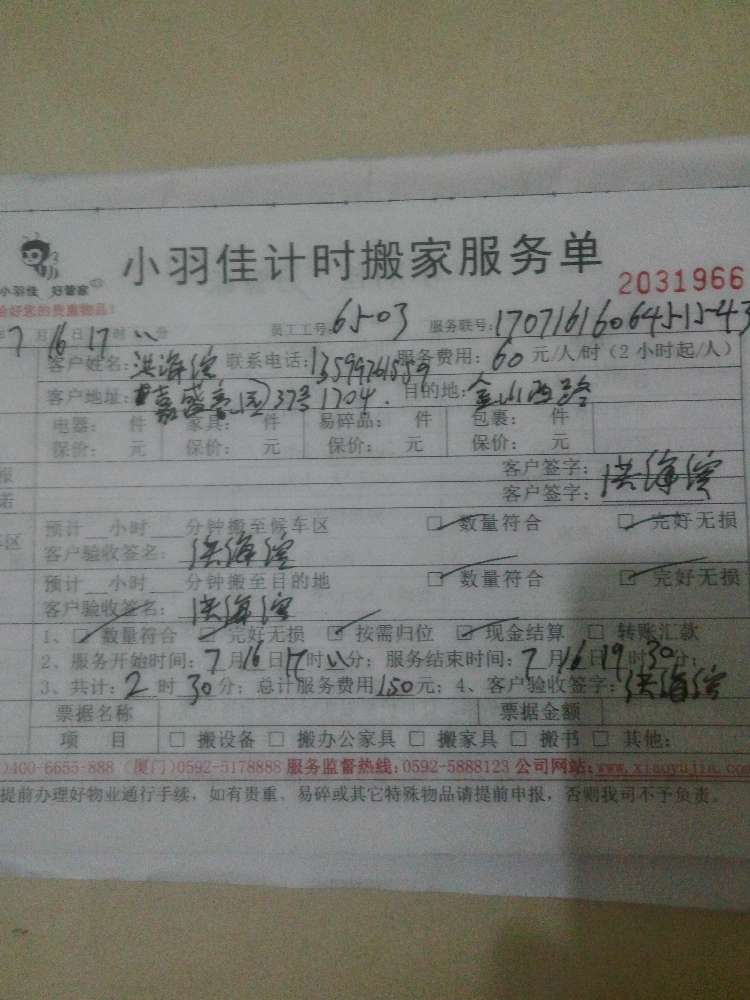 小羽佳计时搬家服务单
小羽佳 好管家
2031966
好您的贵重物品!
年7月16日17时 分 员工工号:6503 服务联号:170716160645-15-43
客户姓名:洪海滨 联系电话:13599761559 服务费用:60元/人/时(2小时起/人)
客户地址:嘉盛豪园37号1704. 目的地:金山西路
电器: 件 家具: 件 易碎品: 件 包裹: 件
保价: 元 保价: 元 保价: 元 保价: 元
报 客户签字:
诺 客户签字:洪海滨
预计 小时 分钟搬至候车区 □ 数量符合 □ 完好无损
车区 客户验收签名: 洪海滨
预计 小时 分钟搬至目的地 □ 数量符合 □ 完好无损
客户验收签名: 洪海滨
1、□ 数量符合 □ 完好无损 □ 按需归位 □ 现金结算 □ 转账汇款
2、服务开始时间:7月16日17时 分;服务结束时间:7月16日19时30分;
3、共计:2时30分;总计服务费用150元;4、客户验收签字:洪海滨
票据名称 票据金额
项 目 □ 搬设备 □ 搬办公家具 □ 搬家具 □ 搬书 □ 其他:
)400-6655-888 (厦门)0592-5178888 服务监督热线:0592-5888123 公司网站:www.xiaoyujia.com
提前办理好物业通行手续,如有贵重、易碎或其它特殊物品请提前申报,否则我司不予负责。